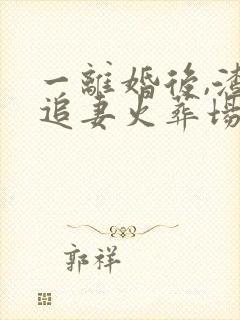 一離婚後,渣
追妻火葬場
郭祥